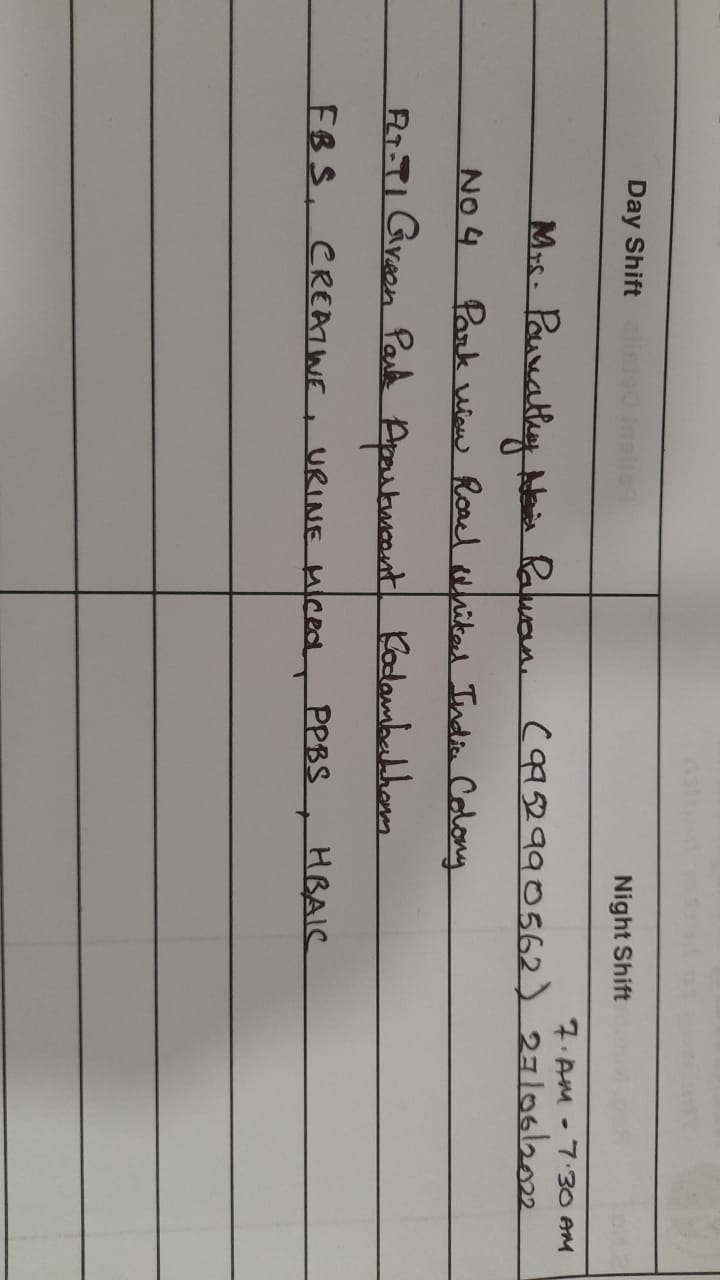 Day Shift Night Shift
7.AM - 7.30 AM
Mrs. Parvathy Raman. (9952990562) 27/06/2022
No 4 Park view Road United India Colony
FLT-T1 Green Park Apartment. Kodambakkam
FBS, CREATINE, URINE MICRO, PPBS, HBA1C